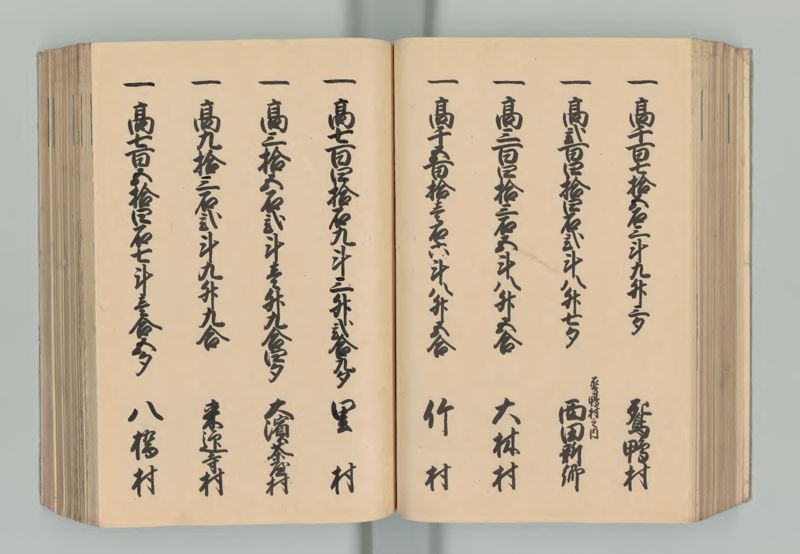 一 高千百七拾五石三斗九升三夕 鴛鴨村
一 高弐百四拾四石弐斗八升七夕 鴛鴨村之内 西田新郷
一 高三百四拾三石五斗八升五合 大林村
一 高千五百拾壱石六斗八升五合 竹村
一 高七百四拾石九斗三升弐合九夕 里村
一 高三拾五石弐斗壱升九合四夕 大濱茶屋村
一 高九拾三石弐斗九升九合 来迎寺村
一 高七百五拾四石七斗壱合五夕 八橋村